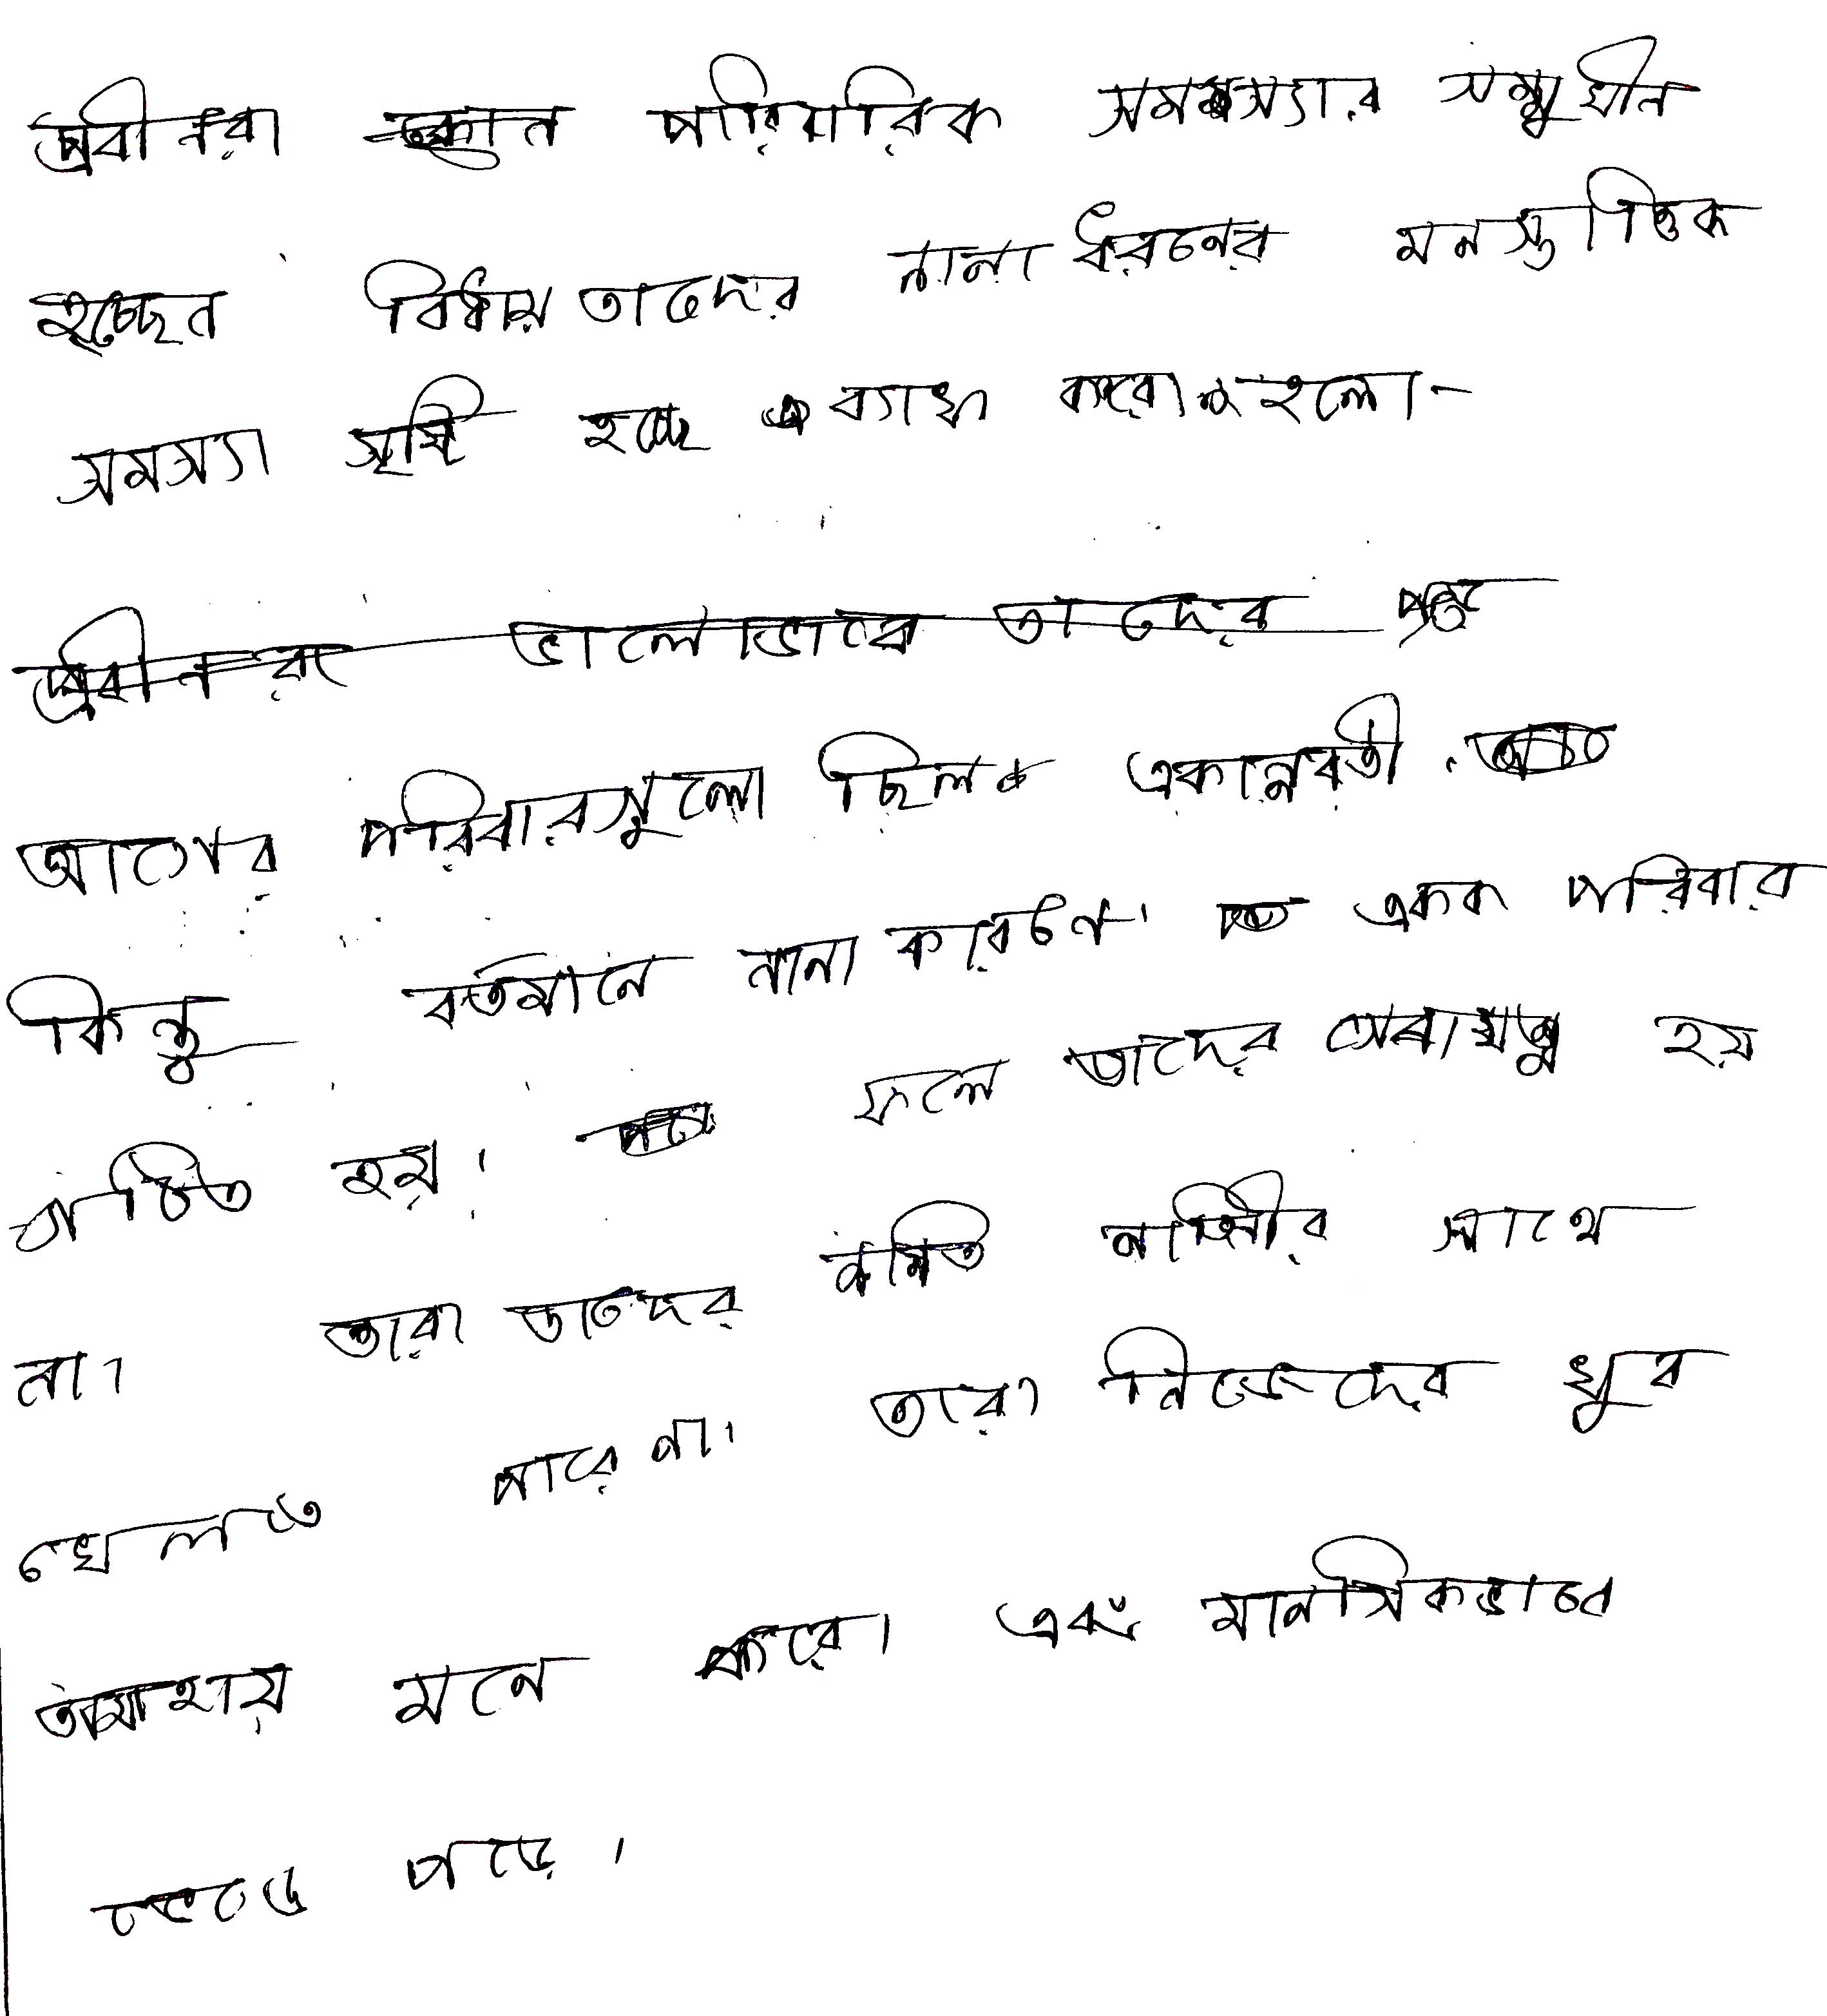 প্রবীনরা কোন পারিবারিক সমস্যার সম্মুখীন
হচ্ছেন বিধায় তাদের নানা ধরনের মনস্তাত্তিক
সমস্যা সৃষ্টি হচ্ছে ব্যাখা করা হলো-
প্রবীনরা ভালোভাবে তাদের
আগের পরিবারগুলো ছিল একান্নবর্তী
কিন্তু বর্তমানে নানা কারণে একক পরিবার
গঠিত হয়। ফলে তাদের সেবাযত্ন হয়
না। তারা তাদের নাতি নাতনীর সাথে
খেলতে পারে না। তারা নিজেদের খুব
অসহায় মনে করে। এবং মানসিকভাবে
ভেঙে পড়ে।